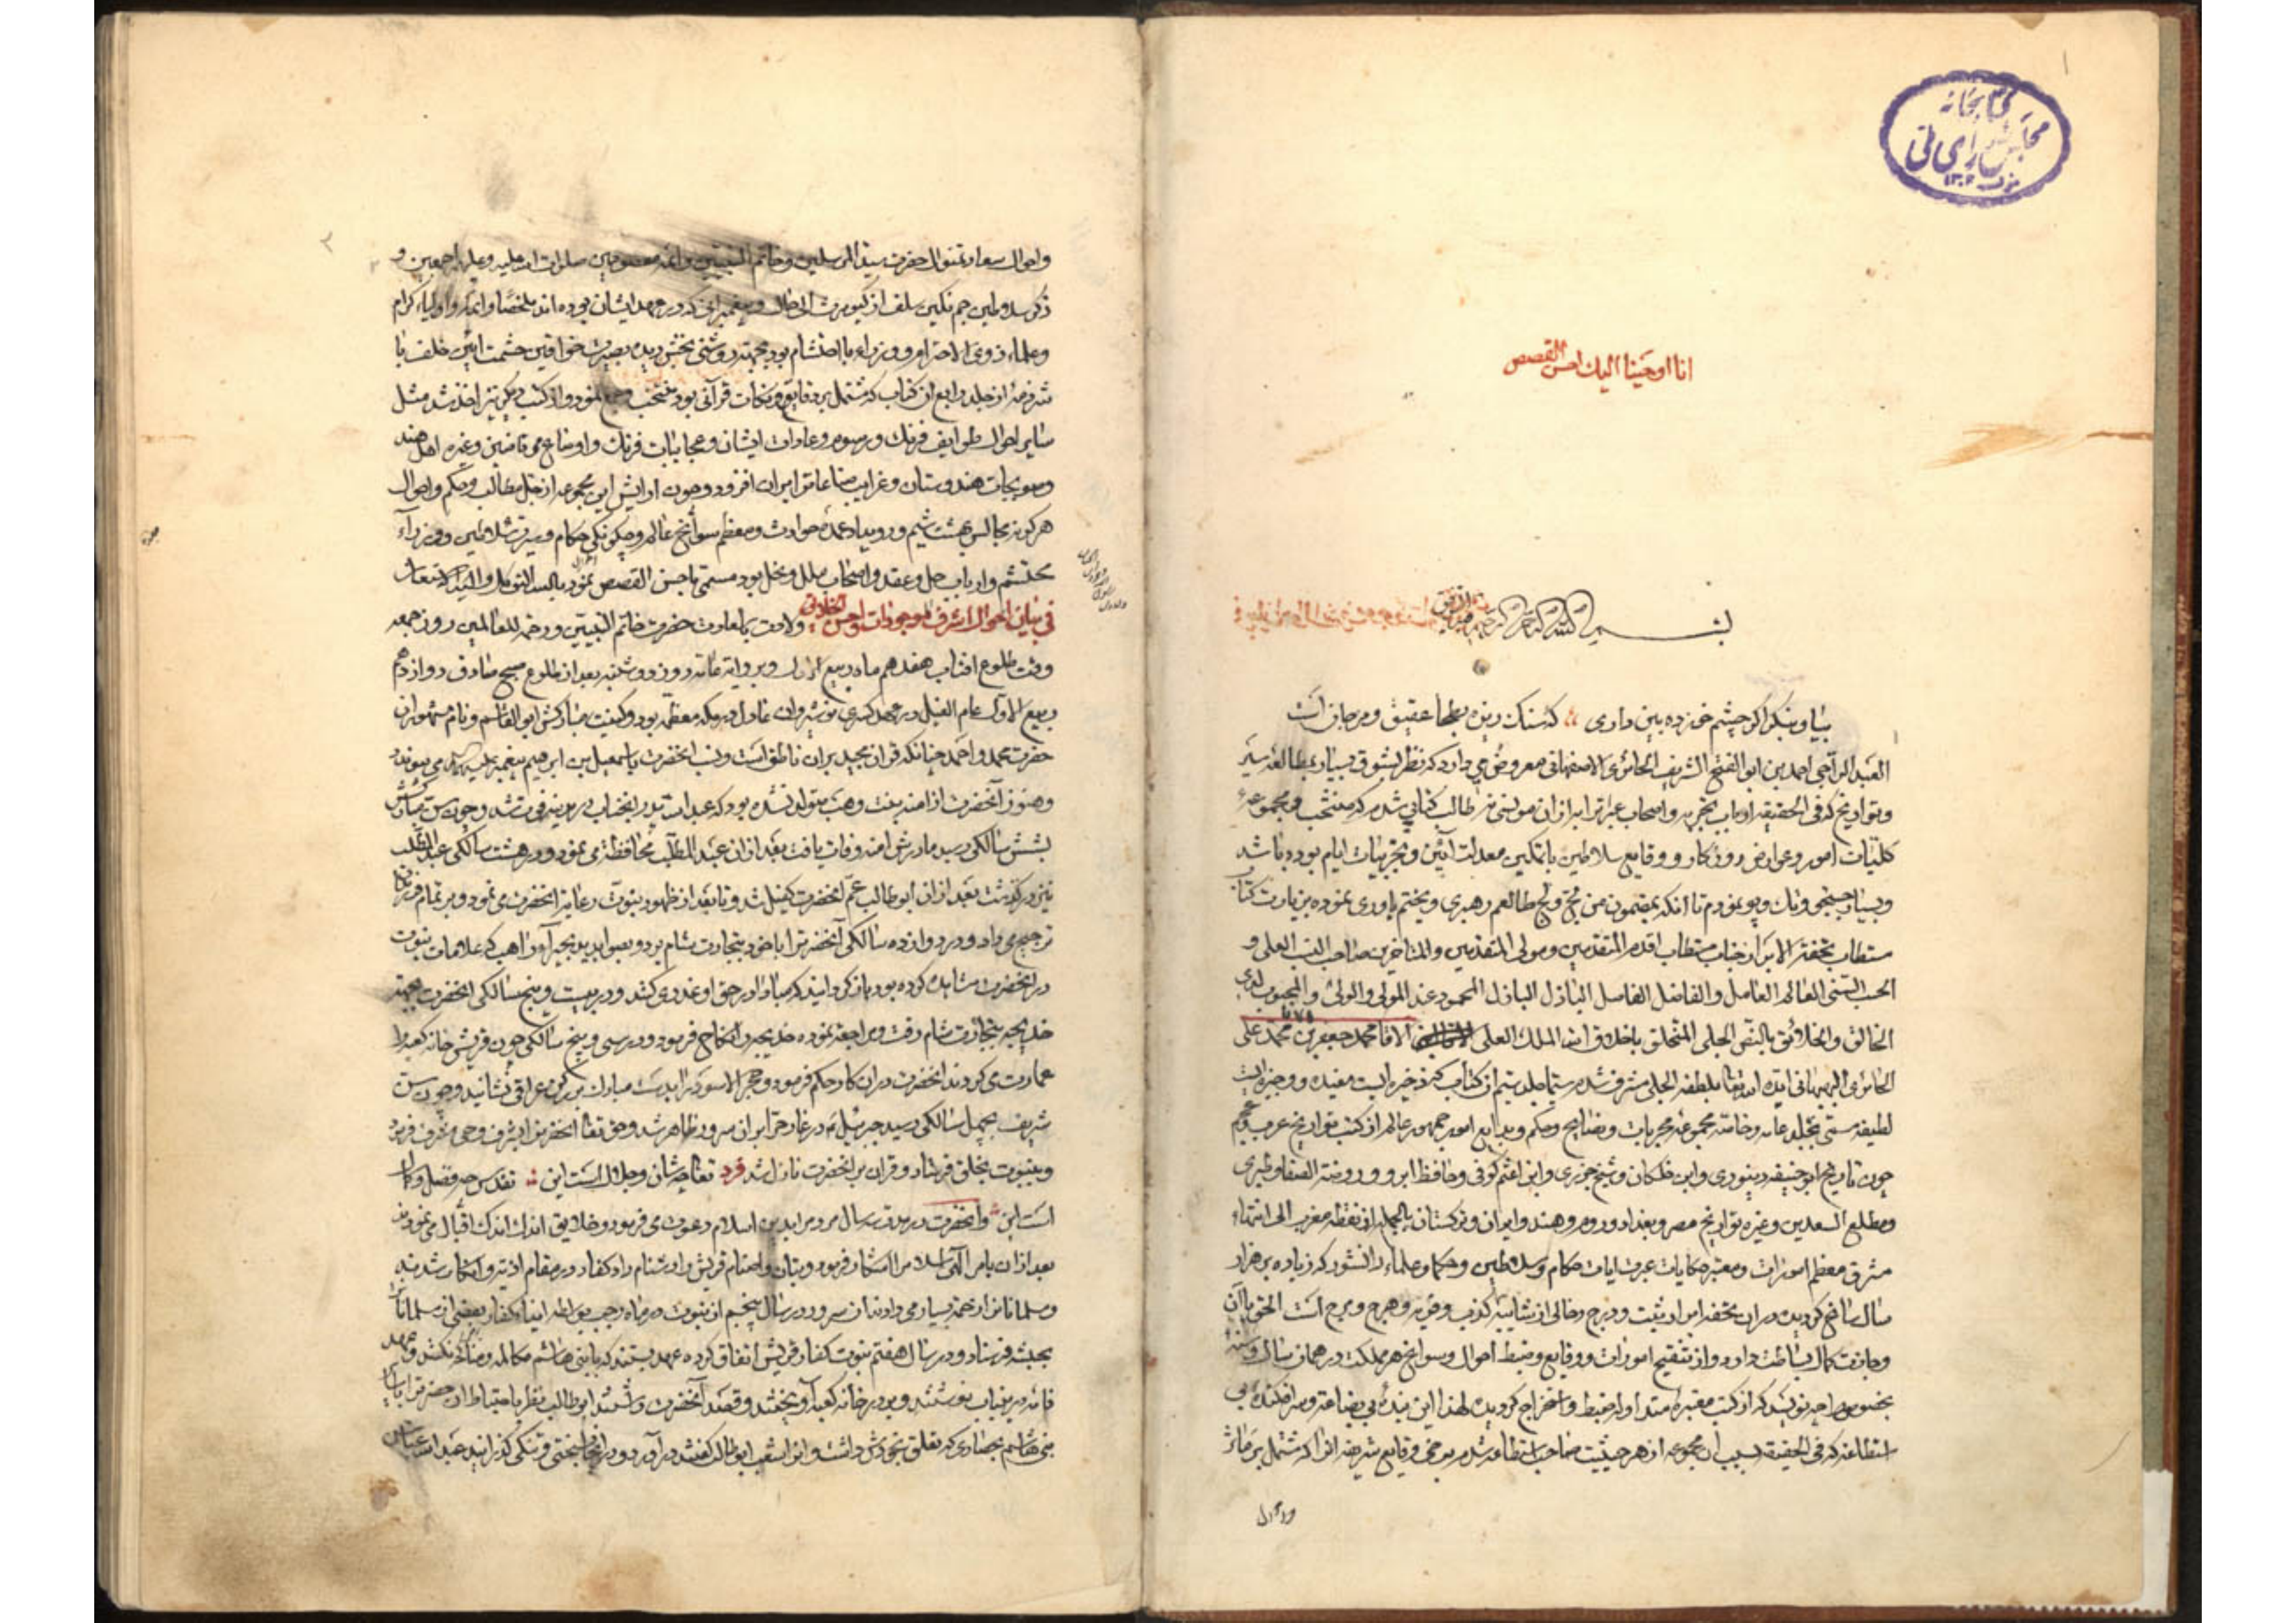 کتابخانه
مجلس شورای ملی
انا اوحینا الیک احسن القصص
بسم الله الرحمن الرحیم
بیا و بنگر اگر چشم خورده بین داری که سنگ ریزه بطحا عقیق و مرجان است
العبد الراجی احمد بن ابو الفتح الشریف الحائری الاصفهانی معروض می دارد که نظر بشوق بسیار بمطالعه سیر
و تواریخ که فی الحقیقه ارباب تجربه و اصحاب عبرت را بر از ان مونسی نه طالب کتابی شدم که منتخب و مجموعه
کلیات امور و عوارض روزگار و وقایع سلاطین باتمکین معدلت آیین و تجربیات ایام بوده باشد
و بسیار جستجو و تک و پو نمودم تا انکه بمضمون من لج ولج طالعم رهبری و بختم یاوری نموده بزیارت کتاب
مستطاب تحفة الابرار جناب مستطاب اقدم المتقدمین و مولی المتقدمین و المتاخرین صاحب النسب العلی و
الحسب السنی العالم العامل و الفاضل الفاصل الباذل المحمود عند المولی و الولی و المحبوب لدی
الخالق و الخلائق بالنص الجلی المتخلق باخلاق الله الملک العلی الاقا محمد جعفر بن محمد علی
الحائری البهبهانی ایده الله تعالی بلطفه الجلی مشرف شدم سیما جلد سیم ان کتاب که ذخیره ایست مفیده و وجیزه ایست
لطیفه مسمی بمجلد عامه و خاتمه مجموعه مجربات و نصایح و حکم و بدایع امور جمهور عالم از کتب تواریخ عرب و عجم
چون تاریخ ابو حنیفه دینوری و ابن خلکان و شیخ جزری و ابن اعثم کوفی و حافظ ابرو و روضة الصفا و طبری
و مطلع السعدین و غیره تواریخ مصر و بغداد و روم و هند و ایران و ترکستان بالجمله از نقطه مغرب الی انتهاء
مشرق معظم امورات و معتبر حکایات عبرت ایات حکام و سلاطین و حکما و علماء دانشور که زیاده بر هزار
سال سانح گردیده در ان تحفه ابرار ثبت و درج و خالی از شایبه کذب و فریه و هرج و مرج است الحق با آن
وجازت کمال بساطت دارد و از تنقیح امورات و وقایع و ضبط احوال و سوانح هر مملکت در همان سال و سنه
بخصوص احد نویسد که از کتب معتبره متداوله ضبط و استخراج گردیده لهذا این بنده بی بضاعة و سرافکنده بی
استطاعة که فی الحقیقه بسبب ان مجموعه از هر حیثیت صاحب استطاعه شدم برخی وقایع شریفه انرا که مشتمل بر مآثر
و احوال
و احوال سعادتمنوال حضرت سید المرسلین و خاتم النبیین و ائمه معصومین صلوات الله علیه و علیهم اجمعین و
ذکر سلاطین جم نگین سلف از کیومرث الی حال و پیغمبرانی که در عهد ایشان بوده اند ملخصا و ائمه و اولیاء کرام
و علماء ذوی الاحترام و وزراء با احتشام بود بجهة روشنی بخش دیده بصیرت خواقین حشمت ایین خلف با
شرذمه از جلد رابع ان کتاب که مشتمل بر دقایق و نکات قرآنی بود منتخب و جمع نمود و از کتب دیگر نیز اخذ شد مثل
سایر احوال طوایف فرنگ و رسوم و عادات ایشان و عجایبات فرنگ و اوضاع مرتاضین و غیره اهل هند
و صوبجات هندوستان و غرایب صناعات ایران افزود و چون ارایش این مجموعه از جل مطالب و حکم و احوال
هرگونه مجالس بهشت شیم و رویداد عمده حوادث و معظم سوانح عالم و چگونگی حکام و سیرت سلاطین و وزراء
محتشم و ارباب حل و عقد و اصحاب ملل و نحل بود مسمی باحسن القصص نمود بالله التوکل و الیه الاستعانه
فی بیان احوال اشرف الموجودات و احسن الخلایق ولادت باسعادت حضرت خاتم النبیین و رحمة للعالمین روز جمعه
وقت طلوع افتاب هفدهم ماه ربیع الاول و بروایة عامه روز دوشنبه بعد از طلوع صبح صادق دوازدهم
ربیع الاول عام الفیل در عهد کسری نوشیروان عادل در مکه معظمه بود و کنیت مبارکش ابو القاسم و نام مشهوران
حضرت محمد و احمد چنانکه قران مجید بران ناطق است و نسب انحضرت باسمعیل بن ابرهیم پیغمبر علیه السلام می پیوندد
و هنوز آنحضرت از امنه بنت وهب متولد نشده بود که عبد الله پدر انجناب در مدینه فوت شد و چون سن مبارکش
بشش سالگی رسید مادرش امنه وفات یافت بعد از ان عبد المطلب محافظتش می نمود و در هشت سالگی عبد المطلب
نیز درگذشت بعد از ان ابو طالب عم انحضرت کفیل شد و تا بعد از ظهور نبوت رعایة انحضرت می نمود و بر تمام فرزندان
ترجیح می داد و در دوازده سالگی آنحضرت را با خود بتجارت شام برد و بصوابدید بحیرا راهب که علامات نبوت
در انحضرت مشاهده کرده بود بازگردانید که مبادا در حق او غدری کنند و در بیست و پنج سالگی انحضرت بجهة
خدیجه بتجارت شام رفت و مراجعة نموده خدیجه را نکاح فرمود و در سی و پنج سالگی چون قریش خانه کعبه را
عمارت می کردند انحضرت دران کار حکم فرمود و حجر الاسود را بدست مبارک بر رکن عراقی نشانید و چون سن
شریف بچهل سالگی رسید جبرئیل در غار حرا بران سرور ظاهر شد و حق تعالی انحضرت را بشرف وحی مشرف فرمود
و بنبوت بخلق فرستاد و قران بر انحضرت نازل شد فرد تعالی چه شان و جلال است این تقدس چه فضل و کمال
است این و انحضرت در مدت سه سال مردم را بدین اسلام دعوت می فرمود و خلایق اندک اندک اقبال می نمودند
بعد از ان بامر الهی اسلام را آشکار فرمود و بتان و اصنام قریش را دشنام داد کفار در مقام اذیة و انکار شدند
و مسلمانان را زحمة بسیار می دادند ان سرور در سال پنجم از نبوت در ماه رجب بواسطه ایذاء کفار بعضی از مسلمانان
بحبشه فرستاد و در سال هفتم نبوت کفار قریش اتفاق کرده عهد بستند که با بنی هاشم مکالمه و مناکحه نکنند و عهد
نامه درین باب نوشتند و بر در خانه کعبه آویختند و قصد آنحضرت داشتند ابو طالب نظر باحتیاط انحضرت را با سایر
بنی هاشم بحصاری که تعلق بخودش داشت و انرا شعب ابو طالب گفتند در آورد و در انجا بسختی و تنگی گذرانید عبد الله عباس